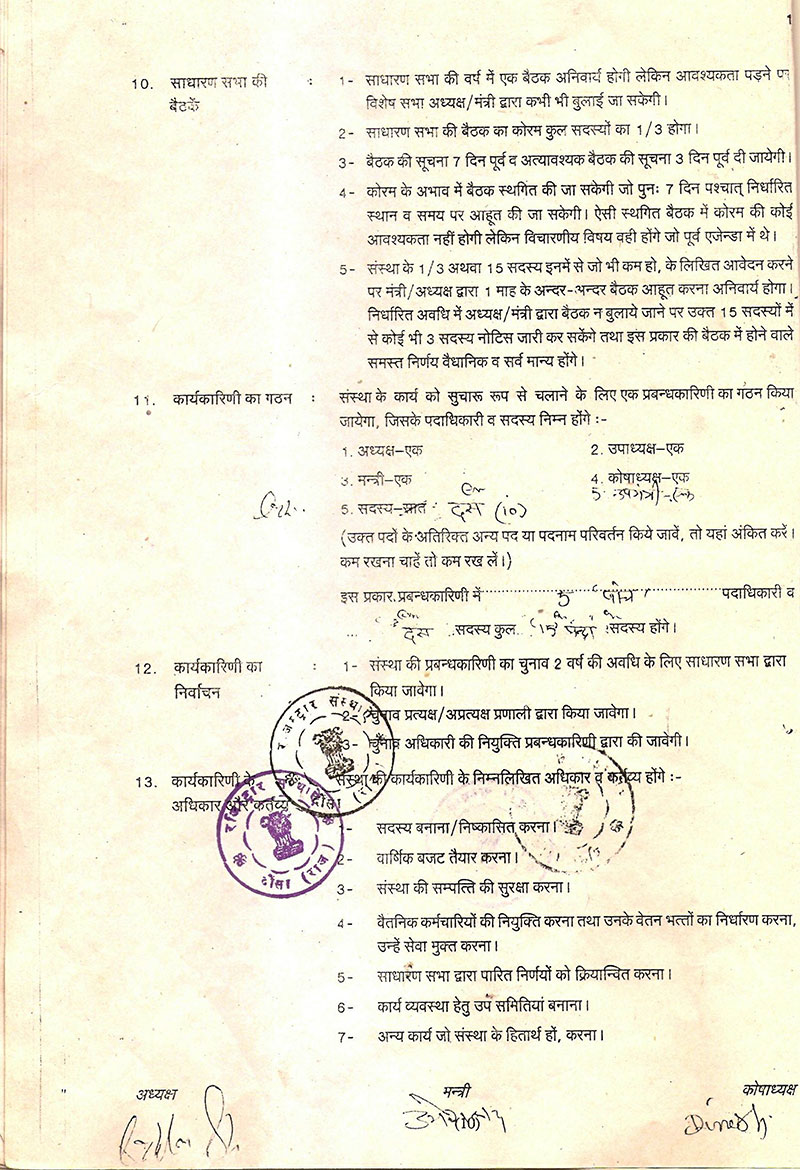 1
10. साधारण सभा की : 1- साधारण सभा की वर्ष में एक बैठक अनिवार्य होगी लेकिन आवश्यकता पड़ने पर
बैठकें विशेष सभा अध्यक्ष/मंत्री द्वारा कभी भी बुलाई जा सकेगी।
2- साधारण सभा की बैठक का कोरम कुल सदस्यों का 1/3 होगा।
3- बैठक की सूचना 7 दिन पूर्व व अत्यावश्यक बैठक की सूचना 3 दिन पूर्व दी जायेगी।
4- कोरम के अभाव में बैठक स्थगित की जा सकेगी जो पुनः 7 दिन पश्चात् निर्धारित
स्थान व समय पर आहूत की जा सकेगी। ऐसी स्थगित बैठक में कोरम की कोई
आवश्यकता नहीं होगी लेकिन विचारणीय विषय वही होंगे जो पूर्व एजेन्डा में थे।
5- संस्था के 1/3 अथवा 15 सदस्य इनमें से जो भी कम हो, के लिखित आवेदन करने
पर मंत्री/अध्यक्ष द्वारा 1 माह के अन्दर-अन्दर बैठक आहूत करना अनिवार्य होगा।
निर्धारित अवधि में अध्यक्ष/मंत्री द्वारा बैठक न बुलाये जाने पर उक्त 15 सदस्यों में
से कोई भी 3 सदस्य नोटिस जारी कर सकेंगे तथा इस प्रकार की बैठक में होने वाले
समस्त निर्णय वैधानिक व सर्व मान्य होंगे।
11. कार्यकारिणी का गठन : संस्था के कार्य को सुचारू रूप से चलाने के लिए एक प्रबन्धकारिणी का गठन किया
जायेगा, जिसके पदाधिकारी व सदस्य निम्न होंगे :-
1. अध्यक्ष-एक 2. उपाध्यक्ष-एक
3. मन्त्री-एक 4. कोषाध्यक्ष-एक
5. उपमंत्री-एक
5. सदस्य-सात दस (10)
(उक्त पदों के अतिरिक्त अन्य पद या पदनाम परिवर्तन किये जावें, तो यहां अंकित करें।
कम रखना चाहें तो कम रख लें।)
इस प्रकार प्रबन्धकारिणी में 5 पाँच पदाधिकारी व
दस सदस्य कुल 15 सदस्य होंगे।
12. कार्यकारिणी का : 1- संस्था की प्रबन्धकारिणी का चुनाव 2 वर्ष की अवधि के लिए साधारण सभा द्वारा
निर्वाचन किया जावेगा।
2- चुनाव प्रत्यक्ष/अप्रत्यक्ष प्रणाली द्वारा किया जावेगा।
3- चुनाव अधिकारी की नियुक्ति प्रबन्धकारिणी द्वारा की जावेगी।
13. कार्यकारिणी के संस्था की कार्यकारिणी के निम्नलिखित अधिकार व कर्तव्य होंगे :-
अधिकार और कर्तव्य
1- सदस्य बनाना/निष्कासित करना।
2- वार्षिक बजट तैयार करना।
3- संस्था की सम्पत्ति की सुरक्षा करना।
4- वैतनिक कर्मचारियों की नियुक्ति करना तथा उनके वेतन भत्तों का निर्धारण करना,
उन्हें सेवा मुक्त करना।
5- साधारण सभा द्वारा पारित निर्णयों को क्रियान्वित करना।
6- कार्य व्यवस्था हेतु उप समितियां बनाना।
7- अन्य कार्य जो संस्था के हितार्थ हों, करना।
रजिस्ट्रार संस्थाएं
दौसा (राज)
अध्यक्ष मन्त्री कोषाध्यक्ष
Dinesh